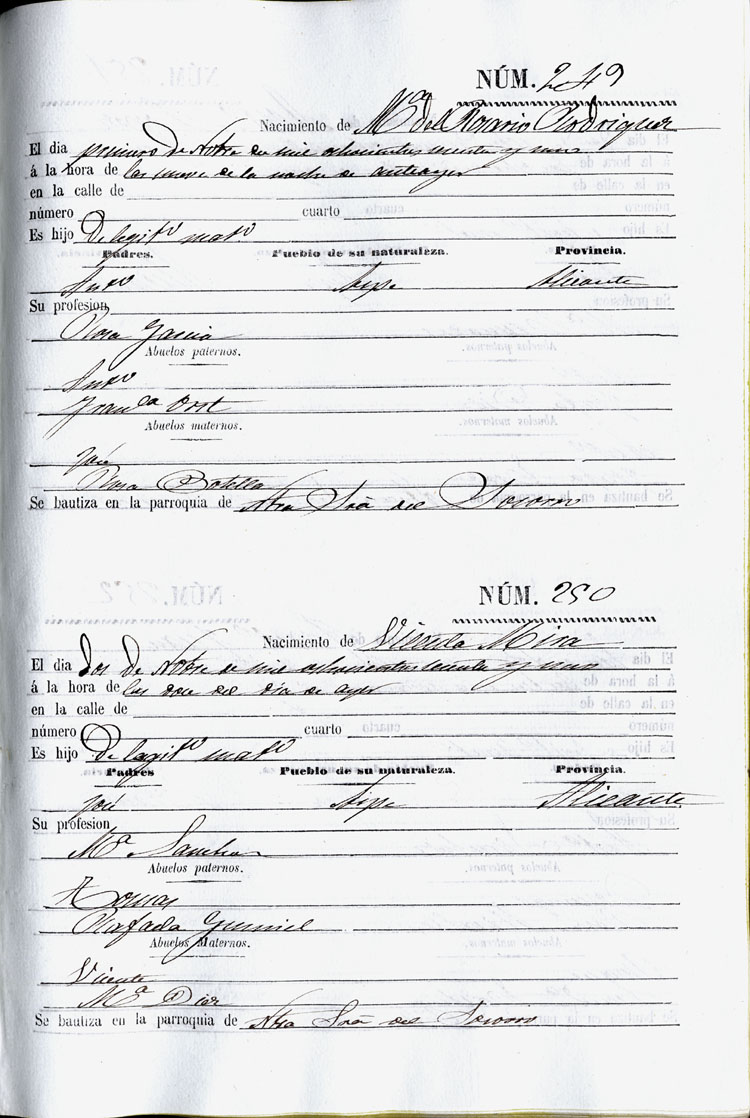 NÚM. 249
Nacimiento de Mª del Rosario Rodriguez
El dia primero de Nobre de mil ochocientos y uno
á la hora de las nueve de la noche de anteayer
en la calle de
número cuarto
Es hijo De legitº matº
Padres. Pueblo de su naturaleza. Provincia.
Antº Aspe Alicante
Su profesion,
Rosa Garcia
Abuelos paternos.
Antº
Franca Ort
Abuelos maternos.
José
Rosa Botella
Se bautiza en la parroquia de Ntra Sra del Socorro
NÚM. 250
Nacimiento de Vicenta Mira
El dia dos de Nobre de mil ochocientos y uno
á la hora de las doce del dia de ayer
en la calle de
número cuarto
Es hijo De legitº matº
Padres Pueblo de su naturaleza. Provincia.
José Aspe Alicante
Su profesion
Mª Sanchez
Abuelos paternos.
Tomas
Rafaela
Abuelos Maternos.
Vicente
Mª Diez
Se bautiza en la parroquia de Ntra Sra del Socorro